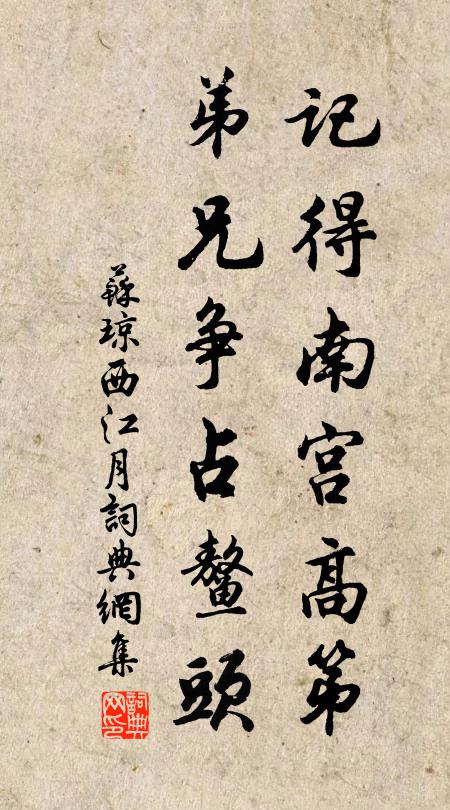 记得南宫高第
弟兄争占鳌頭
蘇琼西江月詞典網集
詞典网印